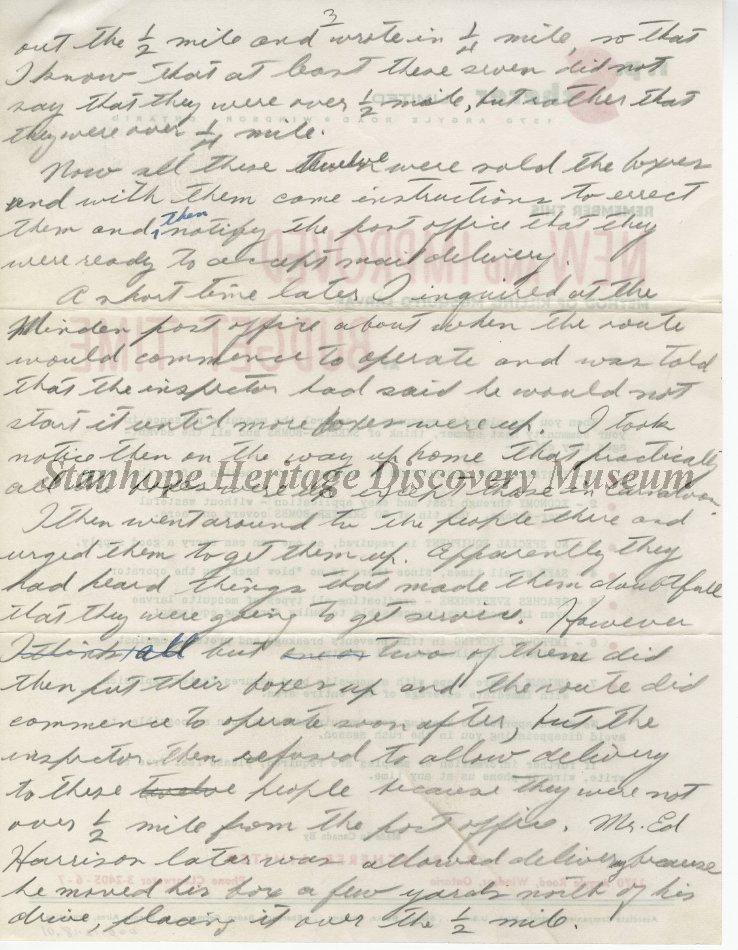 3
out the 1/2 mile and wrote in 1/4 mile, so that
I know that at least these seven did not
say that they were over 1/2 mile, but rather that
they were over 1/4 mile.
Now all these twelve were sold the boxes
and with them came instructions to erect
them and then notify the post office that they
were ready to accept mail delivery.
A short time later I inquired at the
Minden post office about when the route
would commence to operate and was told
that the inspector had said he would not
start it until more boxes were up. I took
notice then on the way up home that practically
all the boxes were up except those in Carnarvon.
Stanhope Heritage Discovery Museum
I then went around to the people there and
urged them to get them up. Apparently they
had heard things that made them doubtfull
that they were going to get service. However
I think all but one or two of them did
then put their boxes up and the route did
commence to operate soon after, but the
inspector then refused to allow delivery
to these twelve people because they were not
over 1/2 mile from the post office. Mr. Ed
Harrison later was allowed delivery because
he moved his box a few yards north of his
drive, placing it over the 1/2 mile.